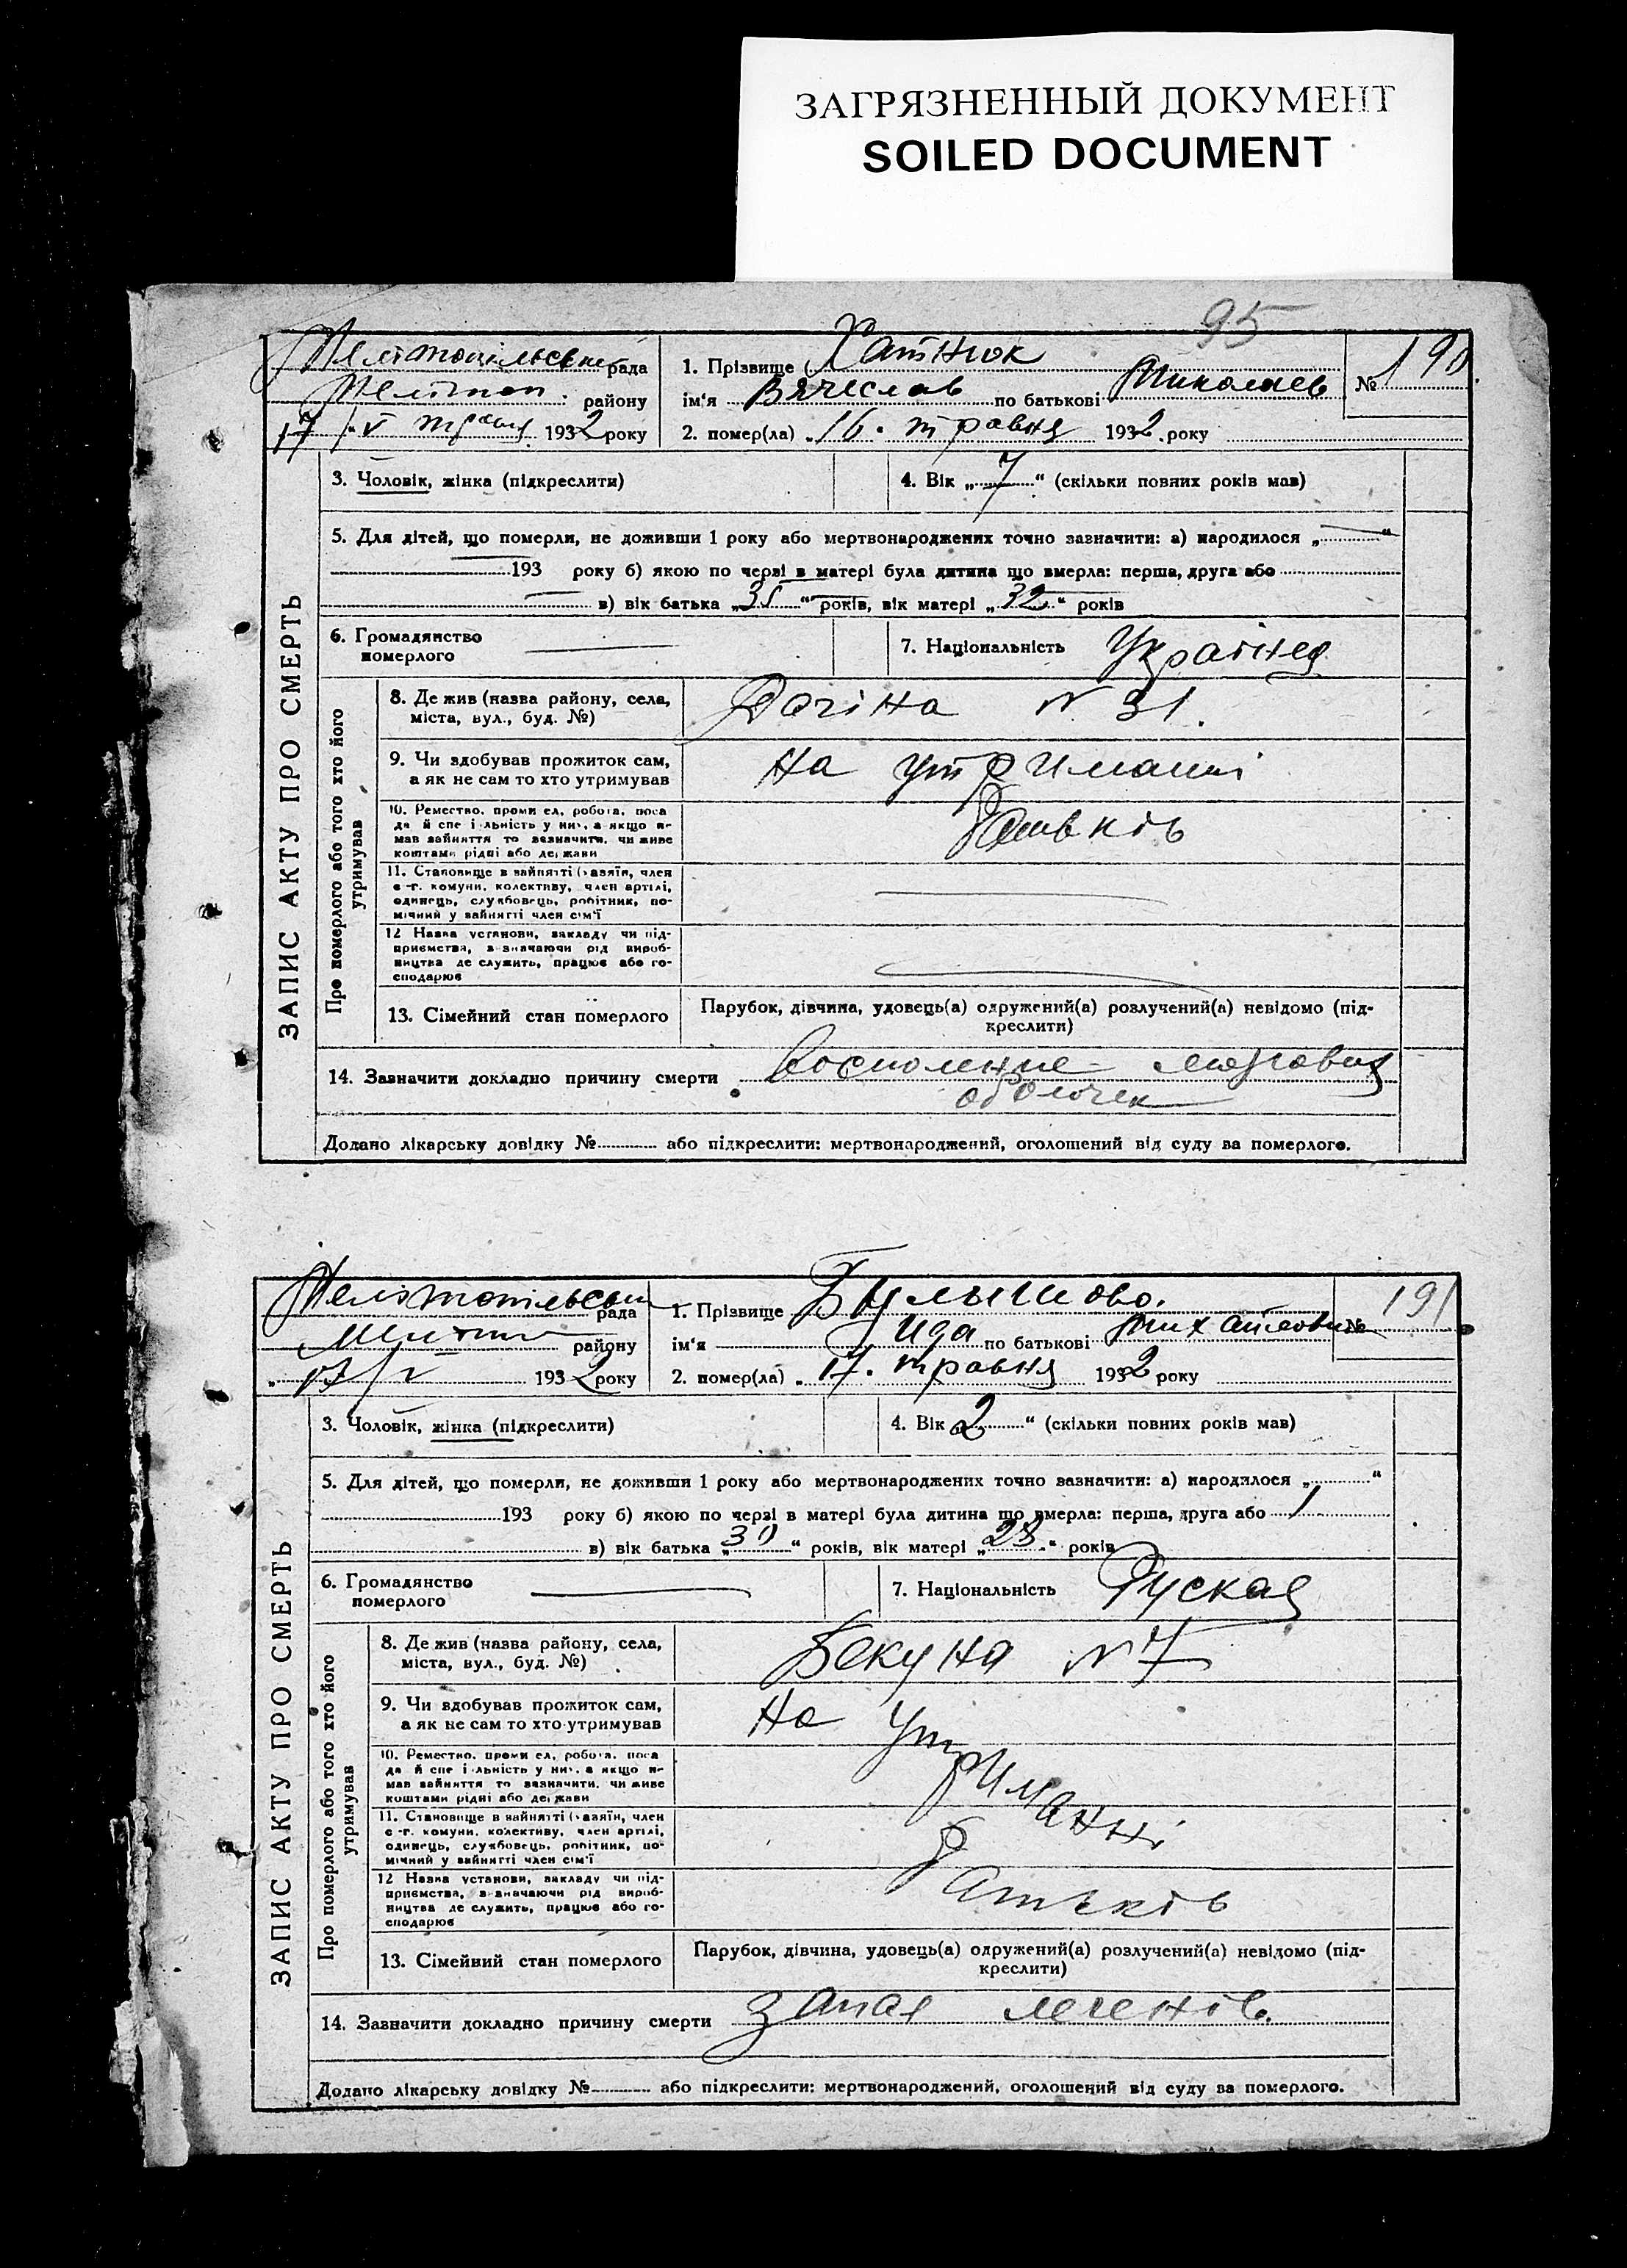 ЗАГРЯЗНЕННЫЙ ДОКУМЕНТ
SOILED DOCUMENT
95
рада
району
17 V 1932 року
1. Прізвище Хатнюк
ім'я Вячеслав по батькові Николаев
№ 190
2. помер(ла) „16. травня 1932 року
ЗАПИС АКТУ ПРО СМЕРТЬ
3. Чоловік, жінка (підкреслити)
4. Вік „7“ (скільки повних років мав)
5. Для дітей, що померли, не доживши 1 року або мертвонароджених точно зазначити: а) народилося „ “
193 року б) якою по черзі в матері була дитина що вмерла: перша, друга або
в) вік батька „35“ років, вік матері „32“ років
6. Громадянство
померлого
7. Національність
Про померлого або того хто його
утримував
8. Де жив (назва району, села,
міста, вул., буд. №)
N 31.
9. Чи здобував прожиток сам,
а як не сам то хто утримував
на утриманні
10. Ремество, промисел, робота, поса
да й спеціальність у них, а якщо не
мав зайняття то зазначити, чи живе
коштами рідні або держави
батьків
11. Становище в зайнятті (хазяїн, член
с.-г. комуни, колективу, член артілі,
одинець, службовець, робітник, по-
мічний у зайнятті член сім'ї
12 Назва установи, закладу чи під-
приємства, зазначаючи рід вироб-
ництва де служить, працює або го-
сподарює
13. Сімейний стан померлого
Парубок, дівчина, удовець(а) одружений(а) розлучений(а) невідомо (під-
креслити)
14. Зазначити докладно причину смерти Восполение мозговых
оболочек
Додано лікарську довідку № або підкреслити: мертвонароджений, оголошений від суду за померлого.
рада
району
17/V 1932 року
1. Прізвище
ім'я Ида по батькові
№ 191
2. помер(ла) „17. травня 1932 року
ЗАПИС АКТУ ПРО СМЕРТЬ
3. Чоловік, жінка (підкреслити)
4. Вік 2“ (скільки повних років мав)
5. Для дітей, що померли, не доживши 1 року або мертвонароджених точно зазначити: а) народилося „ “
193 року б) якою по черзі в матері була дитина що вмерла: перша, друга або 1
в) вік батька „30“ років, вік матері „28“ років
6. Громадянство
померлого
7. Національність Руская
Про померлого або того хто його
утримував
8. Де жив (назва району, села,
міста, вул., буд. №)
N 7
9. Чи здобував прожиток сам,
а як не сам то хто утримував
на утриманні
10. Ремество, промисел, робота, поса
да й спеціальність у них, а якщо не
мав зайняття то зазначити, чи живе
коштами рідні або держави
11. Становище в зайнятті (хазяїн, член
с.-г. комуни, колективу, член артілі,
одинець, службовець, робітник, по-
мічний у зайнятті член сім'ї
12 Назва установи, закладу чи під-
приємства, зазначаючи рід вироб-
ництва де служить, працює або го-
сподарює
батьків
13. Сімейний стан померлого
Парубок, дівчина, удовець(а) одружений(а) розлучений(а) невідомо (під-
креслити)
14. Зазначити докладно причину смерти запал легенів.
Додано лікарську довідку № або підкреслити: мертвонароджений, оголошений від суду за померлого.